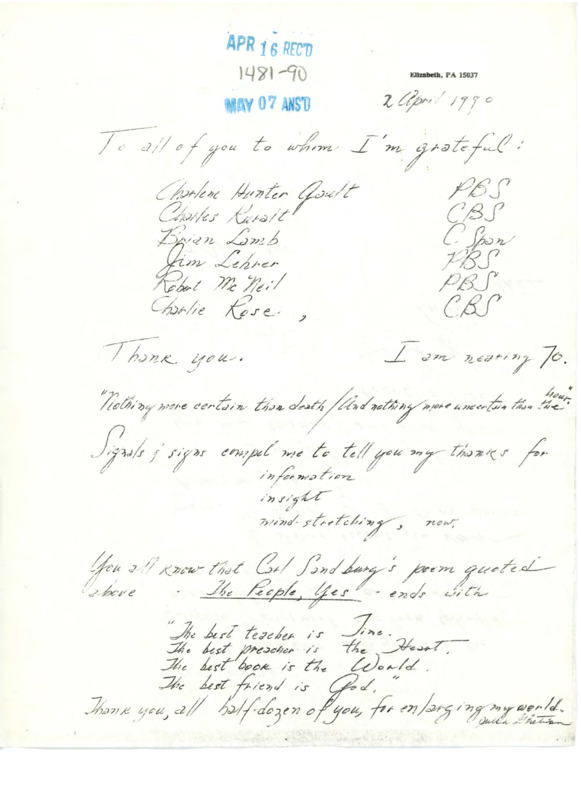 APR 16 REC'D
1481-90
MAY 07 ANS'D
Elizabeth, PA 15037
2 April 1990
To all of you to whom I'm grateful:
Charlene Hunter Gault PBS
Charles Kuralt CBS
Brian Lamb C Span
Jim Lehrer PBS
Robert McNeil PBS
Charlie Rose, CBS
Thank you. I am nearing 70.
"Nothing more certain than death / And nothing more uncertain than the hour."
Signals & signs compel me to tell you my thanks for
information
insight
mind-stretching, now.
You all know that Carl Sandburg's poem quoted
above - The People, Yes - ends with
"The best teacher is Time.
The best preacher is the Heart.
The best book is the World.
The best friend is God."
Thank you, all half-dozen of you, for enlarging my world.